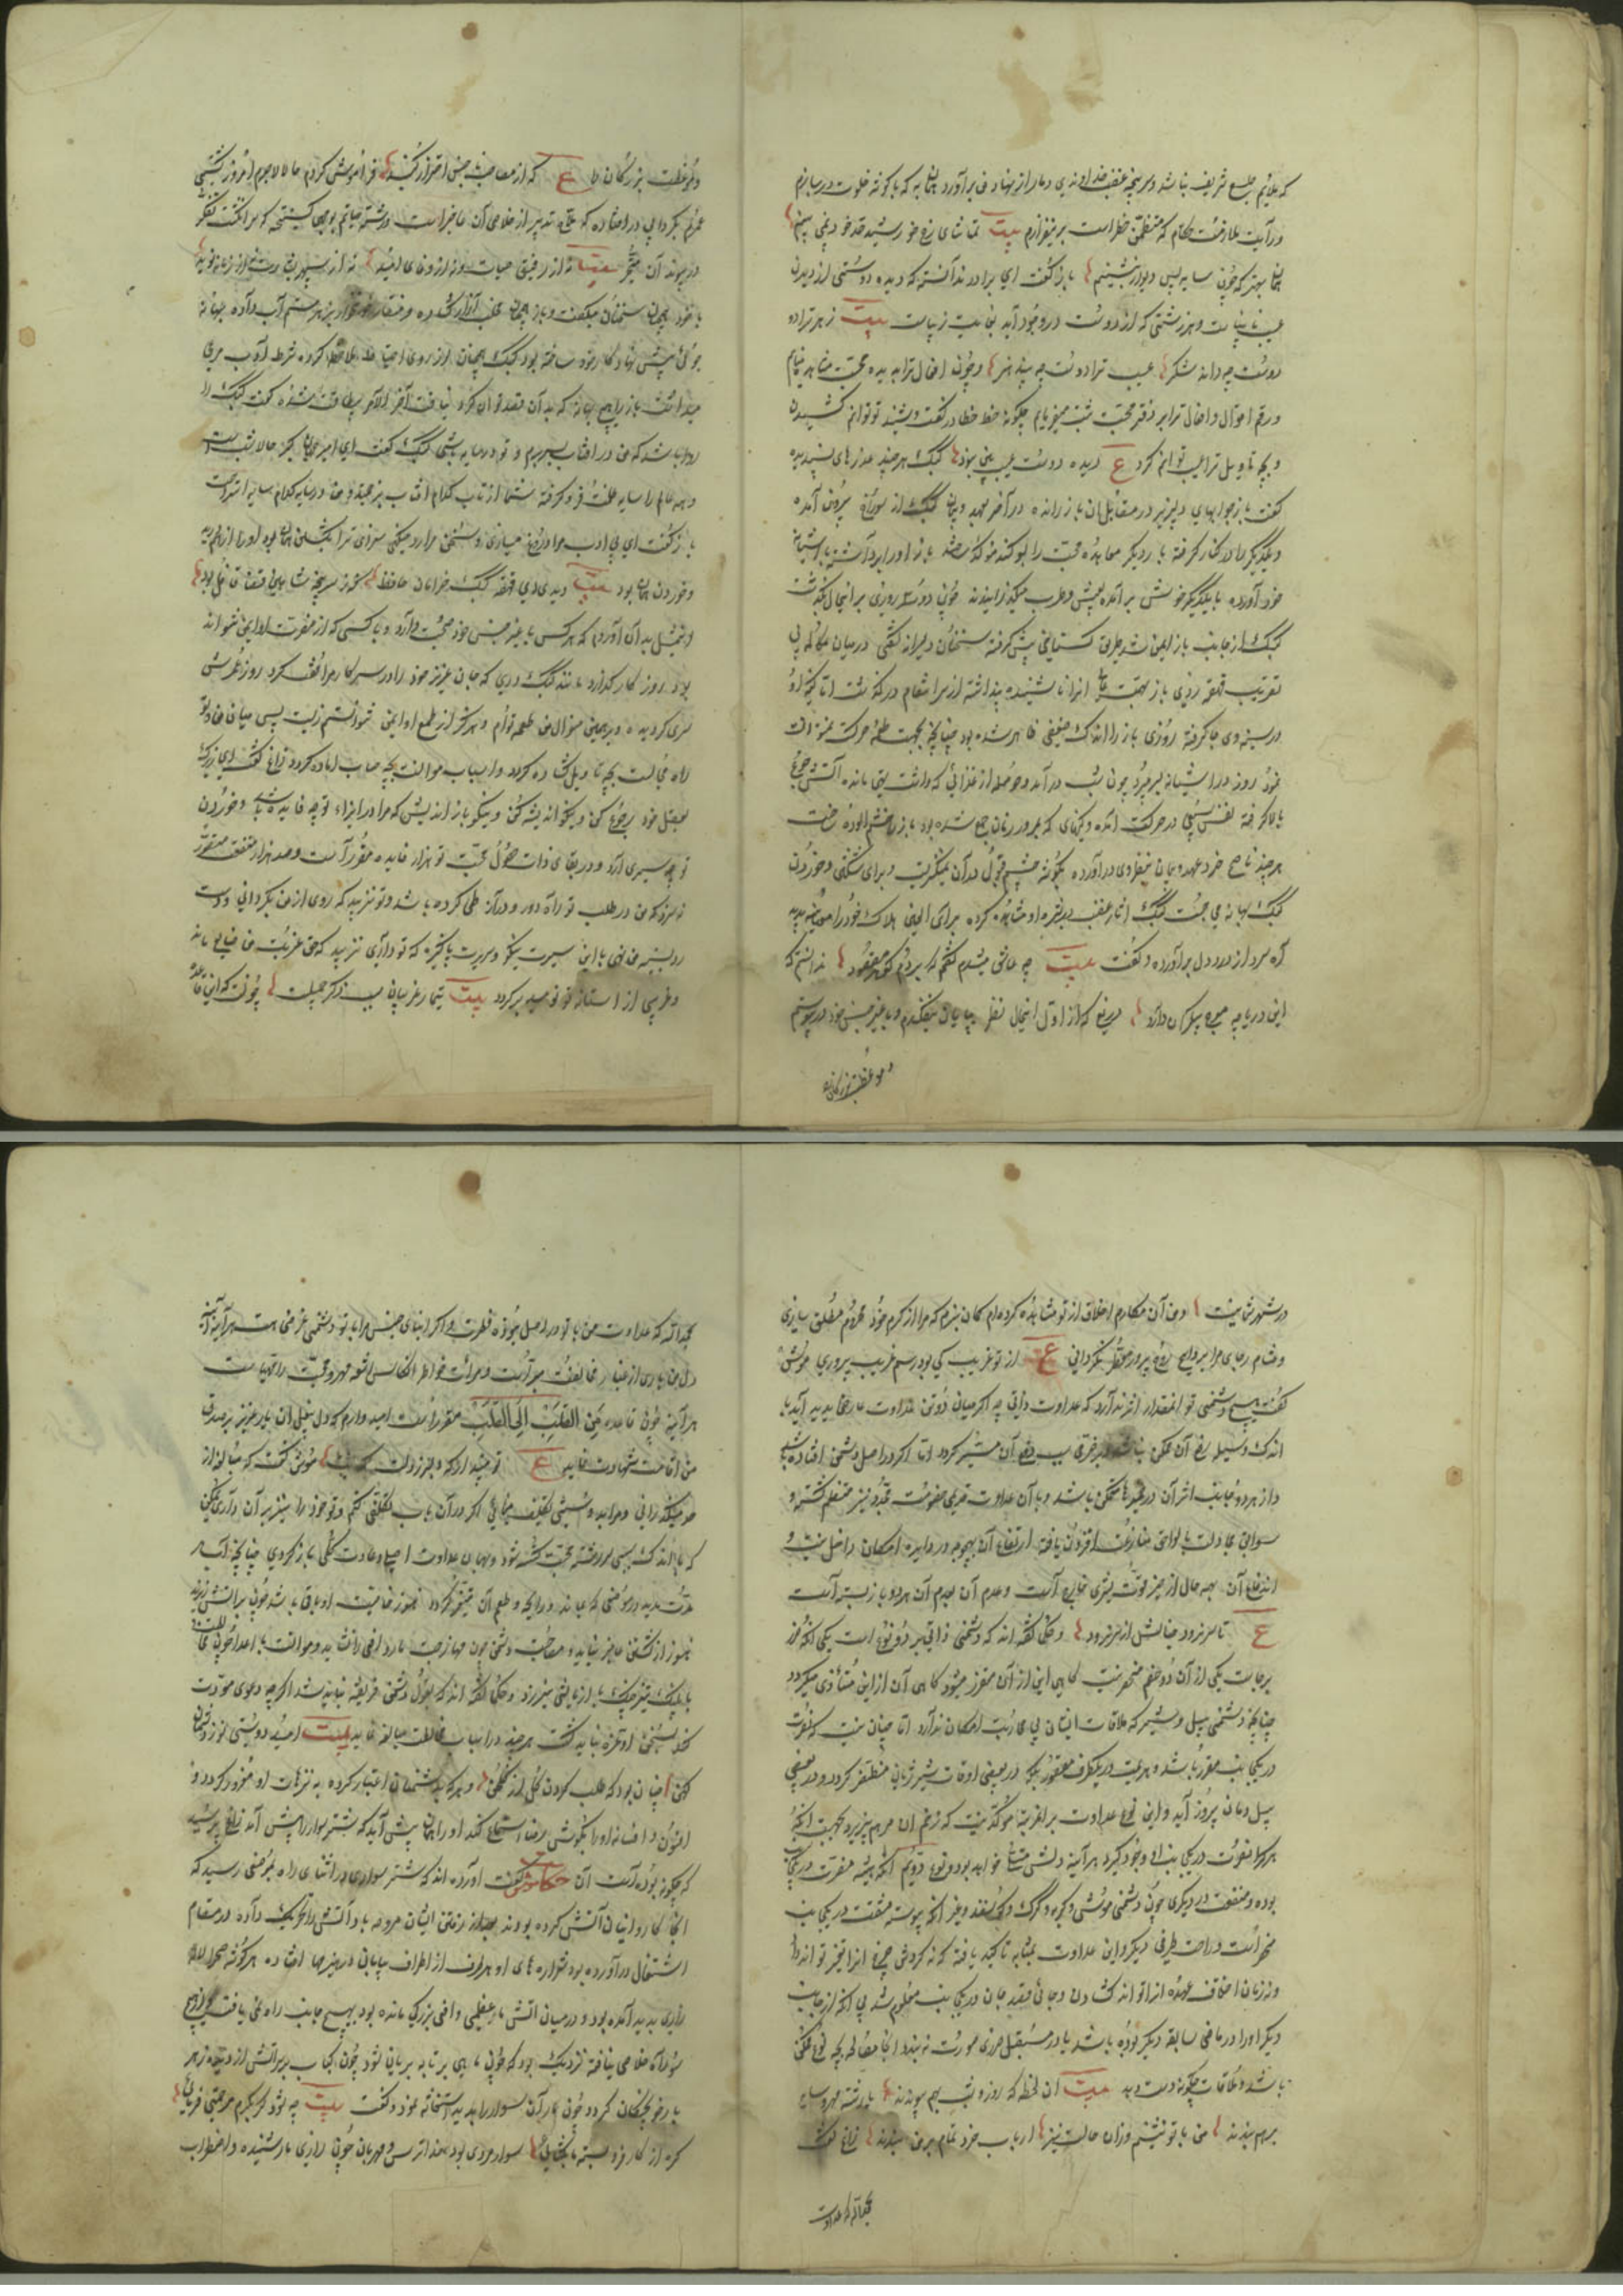 که ملایم طبع شریف نباشد و سرپنجه غضب خداوندی دمار از نهاد من برآورد همان به که با گوشه خلوت در سازم
و رآیت ملازمت حکام که متضمن خطر است بر نیفرازم بیت تماشای رخ خورشید قد خود نمی بینم
همان بهتر که چون سایه پس دیوار بنشینم باز گفت ای برادر ندانسته که دیده دوستی از دیدن
عیب نابیناست و هر زشتی که از دوست در وجود آید بغایت زیباست بیت زهر ترا دوست
دوست چه داند شکر عیب ترا دوست چه بیند هنر و چون افعال ترا بدیده محبت مشاهده مینمایم
و رقم احوال و افعال ترا بر دفتر محبت ثبت میفرمایم چگونه خط خطا در گفت و شنید تو توانم کشیدن
و بچه تاویل ترا عیب توانم کرد ع دیده دوست عیب بین نبود کبک هر چند عذرهای پسندیده
گفت باز جوابهای دلپذیر در مقابل آن باز رانده در آخر بعهد و پیمان کبک از سوراخ بیرون آمده
و یکدیگر را در کنار گرفته بار دیگر معاهده محبت را بسوگند موکد باز او را برداشته باشیانه
خود آورده با یکدیگر خوش برآمده بعیش و طرب میگذرانیدند چون دو سه روزی بر این حال بگذشت
کبک از جانب باز ایمن شد طریق گستاخی پیش گرفته سخنان دلیرانه گفتی در میان مکالمه بی
تقریب قهقهه زدی باز بهمت عالی انرا ناشنیده پنداشته از سر انتقام در گذشت اما کینه او
در سینه وی جا گرفته روزی باز را اندک ضعفی ظاهر شده بود چنانچه بجهت طعمه حرکت نتوانست
نمود روز در آشیانه بسر برد چون شب درآمد و حوصله از غذائی که داشت تهی مانده آتش جوع
بالا گرفته نفس سبعی در حرکت آمده و کینهای که بمرور زمان جمع شده بود باز را خشم آلوده ساخت
هر چند ناصح خرد عهد و پیمان بنظر وی در آورده بگوشه چشم قبول در آن نمینگریست و برای شکستن و خوردن
کبک بهانه می جست کبک آثار غضب در بشره او مشاهده کرده برای العین هلاک خود را معاینه بدید
آه سرد از دل درد برآورده و گفت بیت چو عاشق میشدم گفتم که بردم گوهر مقصود ندانستم که
این دریا چه موج بیکران دارد دریغ که از اول این حال نظر بپایان نیفکندم و با غیر جنس خود در پیوستم
و موعظت بزرگان
و موعظت بزرگان را ع که از مصاحب ناجنس احتراز کنید فراموش کردم حالا لاجرم امروز کشتی
عمرم بگردابی در افتاده که ملاح تدبیر از خلاصی آن عاجز است و رشته حیاتم بوجهی گسیخته که سر انگشت تفکر
در پیوند آن متحیر بیت نه از رفیق حیات و نه از وفای امید نه از سپهر بشارت نه از زمانه نوید
با خود همچنان سخنان میگفت و باز همچنان مخلب آزار گشاده و منقار خونخوار بزهر ستم آب داده بهانه
جوئی پیش نهاد کار خود ساخته بود کبک همچنان از روی احتیاط ملاحظه کرده شرط ادب مرعی
میداشت باز را هیچ بهانه که بدان قصد توان کرد نیافت آخر الامر بیطاقت شده گفت کبک را
روا باشد که من در آفتاب بسر برم و تو در سایه باشی کبک گفت ای امیر جهان گیر حالا شب است
و همه عالم را سایه ظلمت فرو گرفته شما از تاب کدام آفتاب در زحمتید و من در سایه کدام سایبان استراحت
باز گفت ای بی ادب مرا دروغگو میسازی و سخن مرا رد میکنی سزای ترا بدهم گفتن همان بود و او را از هم دریده
و خوردن همان بود بیت دیدی آن قهقهه کبک خرامان حافظ که ز سرپنجه شاهین قضا غافل بود
و این مثل بدان آوردم که هر کس با غیر جنس خود صحبت دارد و با کسی که از مضرت او ایمن نتواند
بود روزگار گذارد مانند کبک دری که جان عزیز خود را در سر کار مرافقت کرد روز عمرش
سری گردیده و بر همین منوال من طعمه توام و هرگز از طمع تو ایمن نتوانستم زیست پس میان من و تو
راه مخالصت بچه تاویل گشاده گردد و اسباب موالات بچه حساب آماده گردد زاغ گفت ای زیرک
بعقل خود رجوع کن و نیکو اندیشه کن و نیکو باز اندیش که مرا در ایذاء تو چه فایده باشد و خوردن
تو چه سیری آرد و در بقای ذات و حصول محبت تو هزار فایده مقرر است و صد هزار منفعت متصور
نه سزد که من در طلب تو راه دور و دراز طی کرده باشم و تو نزیبد که روی از من بگردانی و دست
رد بسینه من نهی با این سیرت نیکو و سریرت پاکیزه که تو داری نزیبد که حق غربت من ضایع ماند
و غریبی از آستانه تو نومید برگردد بیت تیمار غریبان سبب ذکر جمیل است چون کاین قاعده
در شهر شما نیست و من آن مکارم اخلاق از تو مشاهده کرده‌ام گمان نبرم که مرا از کرم خود محروم مطلق سازی
و مشام رجای مرا بروایح روح پرور معطر نگردانی ع از تو غریب کی بود رسم غریب پروری موش
گفت هیچ دشمنی تو آنمقدار اثر ندارد که عداوت ذاتی چه اگر میان دو تن عداوت عارضی پدید آید با
اندک وسیله رفع آن ممکن باشد و بجزئی سبب دفع آن متیسر گردد اما اگر در اصل دشمنی افتاده باشد
و از هر دو جانب اثر آن در طبعها متمکن باشد و بآن عداوت قدیمی خصومت مجدد نیز منضم گشته و
سوابق مجادلت با لواحق منازعت افزون یافته ارتفاع آن بهیچ وجه در دایره امکان داخل نیست و
اندفاع آن بهمه حال از حیز قوت بشری خارج است و عدم آن بعدم هر دو باز بسته است
ع تا سر نرود خیالش از سر نرود و حکما گفته اند که دشمنی ذاتی بر دو نوع است یکی آنکه ضرر
بر جانب یکی از آن دو خصم منحصر نیست گاهی این از آن متضرر میشود گاهی آن از این متاذی میگردد
چنانچه دشمنی پیل و شیر که ملاقات ایشان بی محاربت امکان ندارد اما چنان نیست که نصرت
در یکجانب مقرر باشد و هزیمت در یکطرف مقصور بلکه در بعضی اوقات شیر ژیان مظفر گردد و در بعضی
پیل دمان پیروز آید و این نوع عداوت بر آنمرتبه موکد نیست که زخم آن مرهم پذیر نبود بجهت آنکه
هر کرا نصرت در یکجانب وجود گیرد هرآینه دلش متسلی خواهد بود و نوع دویم آنکه همیشه مضرت در یکجانب
بوده و منفعت در دیگری چون دشمنی موش و گربه و گرگ و گوسفند و غیر آن که پیوسته مشقت در یکجانب
منحصر است و راحت طرفی دیگر و این عداوت بمثابه تاکید یافته که نه گردش چرخ انرا تغییر تواند داد
و نه زمان اختلاف عقده انرا تواند گشاد و جائی قصد جان در یکجانب معلوم شد بی آنکه از جانب
دیگر او را در ماضی سابقه دیگر بوده باشد یا در مستقبل ضرری صورت بندد اینجا مصالحه بچه نوع ممکن
باشد و ملاقات چگونه دست دهد بیت آن لحظه که روز و شب بهم پیوندند با رشته مهر و سایه
بر هم بندند من با تو نشینم و زان حالت نیز ارباب خرد تمام بر من خندند زاغ گفت
بحمدالله که عداوت
بحمدالله که عداوت من با تو در اصل نبوده فطرت و اگر ابنای جنس مرا با تو دشمنی عرضی هست هرآینه آینه
دل من باری از غبار مخالفت مبراست و مرآت خاطر انعکاس اشعه مهر و محبت را مهیا است
هرآینه چون قاعده مِنَ القَلبِ اِلَی القَلبِ مقرر است امید وارم که دل بیغل آن یار عزیز بر صدق
من اقامت شهادت نماید ع موش گفت که مبالغه از
حد میگذرانی و مرا بدوستی تکلیف مینمائی اگر در آن باب تکلفی کنم و تو خود را نیز بر آن داری ممکن
که باندک سببی سررشته محبت گسسته شود و بهمان عداوت اصلی و عادت جبلی باز گردی چنانچه آب که
مدت مدید در موضعی که بماند و رایحه و طعم آن متغیر گردد هنوز خاصیت او باقی باشد و چون بر آتش ریزند
هنوز از کشتن عاجز نیاید و مصاحبت دشمن چون مهارت مار افعی را نشاید و موالات با اعدا چون مخالطت
با پلنگ تیز چنگ باز یافتن نیرزد و حکما گفته اند که بقول دشمن فریفته نباید شد اگرچه دعوی مودت
کند بسخن او غره نباید گشت هر چند در اسباب مخالصت مبالغه نماید بیت امید دوستی نو ز دشمنان
کهن چنان بود که طلب کردن گل از گلخن و هر که بدشمنان اعتبار کرده به ترهات او مغرور گردد و
افسون و افسانه او را بگوش رضا استماع کند او را همان پیش آید که شتر سوار را پیش آمد زاغ پرسید
که چگونه بوده است آن حکایت موش گفت آورده اند که شتر سواری در اثنای راه بموضعی رسید که
آنجا کاروانیان آتش کرده بودند بعد از رفتن ایشان مروحه باد آتش را تحریک داده در مقام
اشتعال درآورده بود شراره های او هر طرف از اطراف بیابان در هیزمها افتاده هر گوشه صحرا لاله
زاری پدید آمده بود و در میان آتش مار عظیمی و افعی بزرگ مانده بود بهیچ جانب راه نمی یافت و از هیچ
سو راه خلاصی نیافته نزدیک بود که چون ماهی بر تابه بریان شود چون کباب بر آتش از دیده زهر
بار خونچکان گردد چون مار آن سوار را بدید استغاثه نمود و گفت بیت چه شود گر بکرم مرحمتی فرمائی
گره از کار فروبسته ما بگشائی سوار مردی بود خدا ترس و مهربان چون زاری مار شنیده و اضطراب